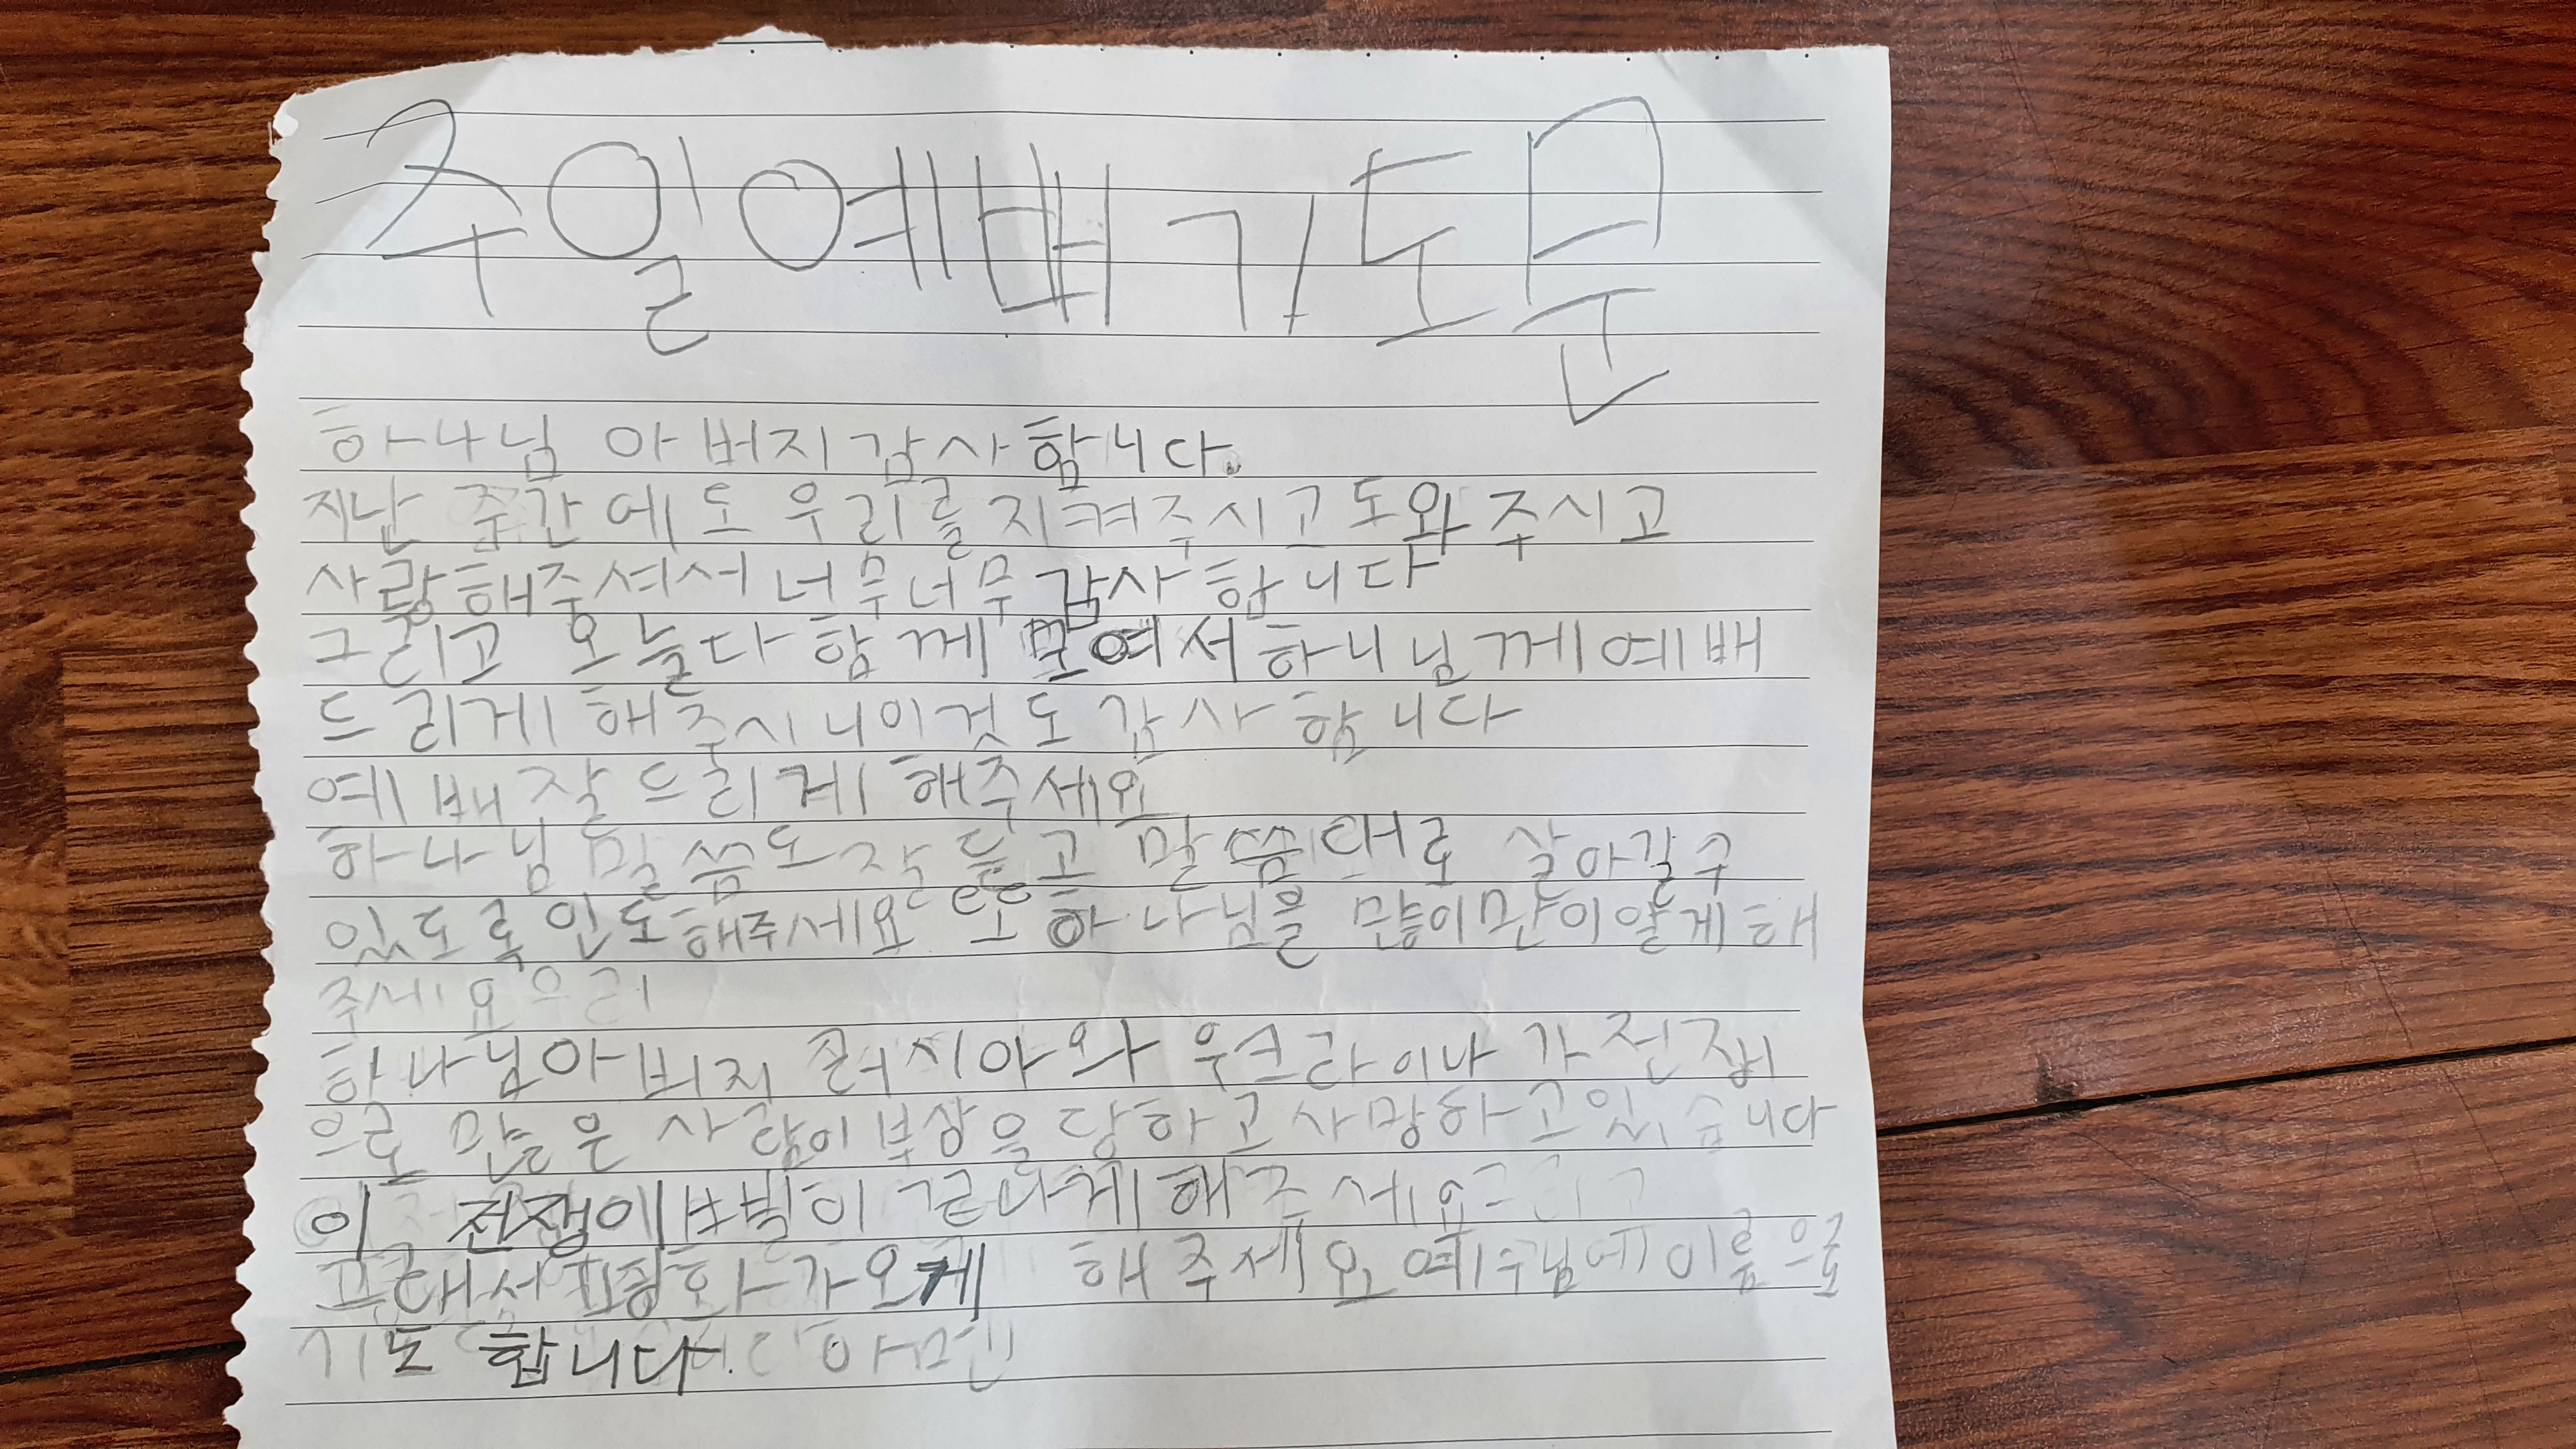 주일예배기도문
하나님 아버지 감사 합니다.
지난 주간에도 우리를 지켜주시고 도와주시고
사랑해주셔서 너무너무 감사 합니다
그리고 오늘 다 함께 모여서 하나님께 예배
드리게 해주시니 이것도 감사 합니다
예배 잘 드리게 해주세요
하나님 말씀도 잘 듣고 말씀대로 살아갈수
있도록 인도해주세요 또 하나님을 많이 많이 알게 해
주세요 우리
하나님 아버지 러시아와 우크라이나가 전쟁
으로 많은 사람이 부상을 당하고 사망하고 있습니다
이 전쟁이 빨이 끝나게 해주세요
그래서 평화가 오게 해주세요 예수님에 이름으로
기도 합니다. 아멘